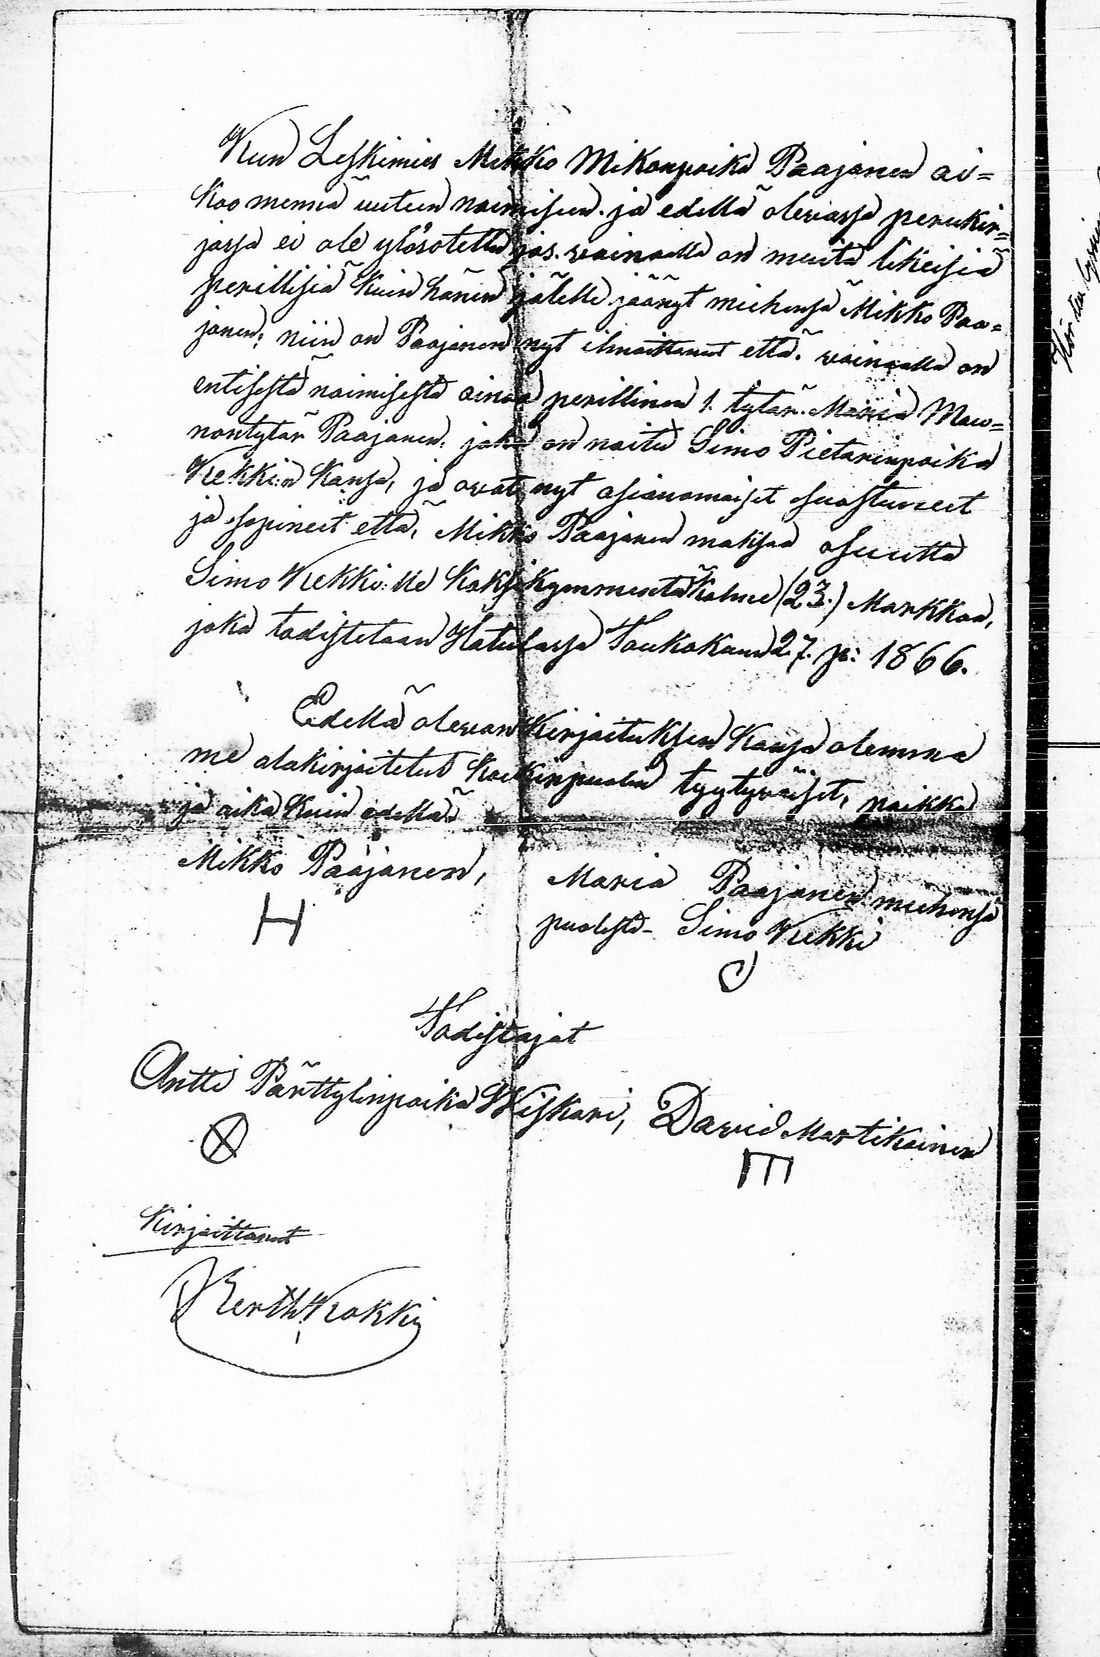 Kun Leskimies Mikko Mikonpoika Paajanen ai=
koo mennä uuteen naimiseen. ja edellä olevassa perukir=
jassa ei ole ylösotettu jos. vainaalla on muita likeisiä
perillisiä kuin hänen jälelle jäänyt miehensä Mikko Paa=
janen; niin on Paajanen nyt ilmoittanut että. vainaalla on
entisestä naimisesta ainoa perillinen 1. tytär. Maria Mau=
nontytär Paajanen. joka on naitu Simo Pietarinpoika
Kekki:n kansa, ja ovat nyt asianomaiset suostuneet
ja sopineet että, Mikko Paajanen maksaa osuutta
Simo Kekki:lle kaksikymmentäkolme (23.) Markkaa,
joka todistetaan Hatulassa Toukokuun 27. p: 1866.
Edellä olevan kirjoituksen kansa olemma
me alakirjoitetut kaikinpuolin tyytyväiset, paikka
ja aika kuin edellä
Mikko Paajanen, Maria Paajanen miehensä
H puolesta - Simo Kekki
Todistajat
Antti Pärttylinpoika Wiskari, David Martikainen
Kirjoittanut
Kokki